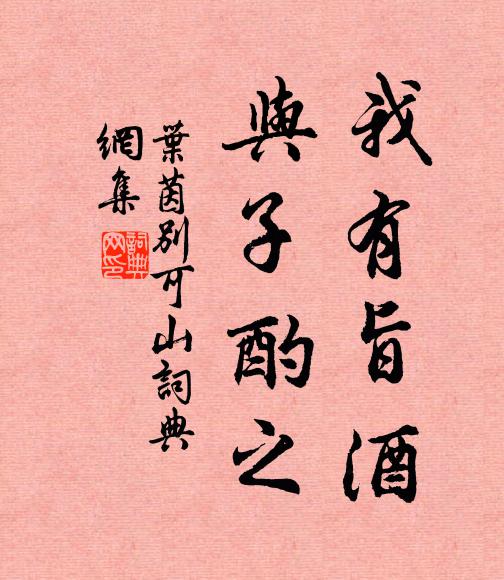 我有旨酒
與子酌之
葉茵別可山詞典
網集
詞典
网印